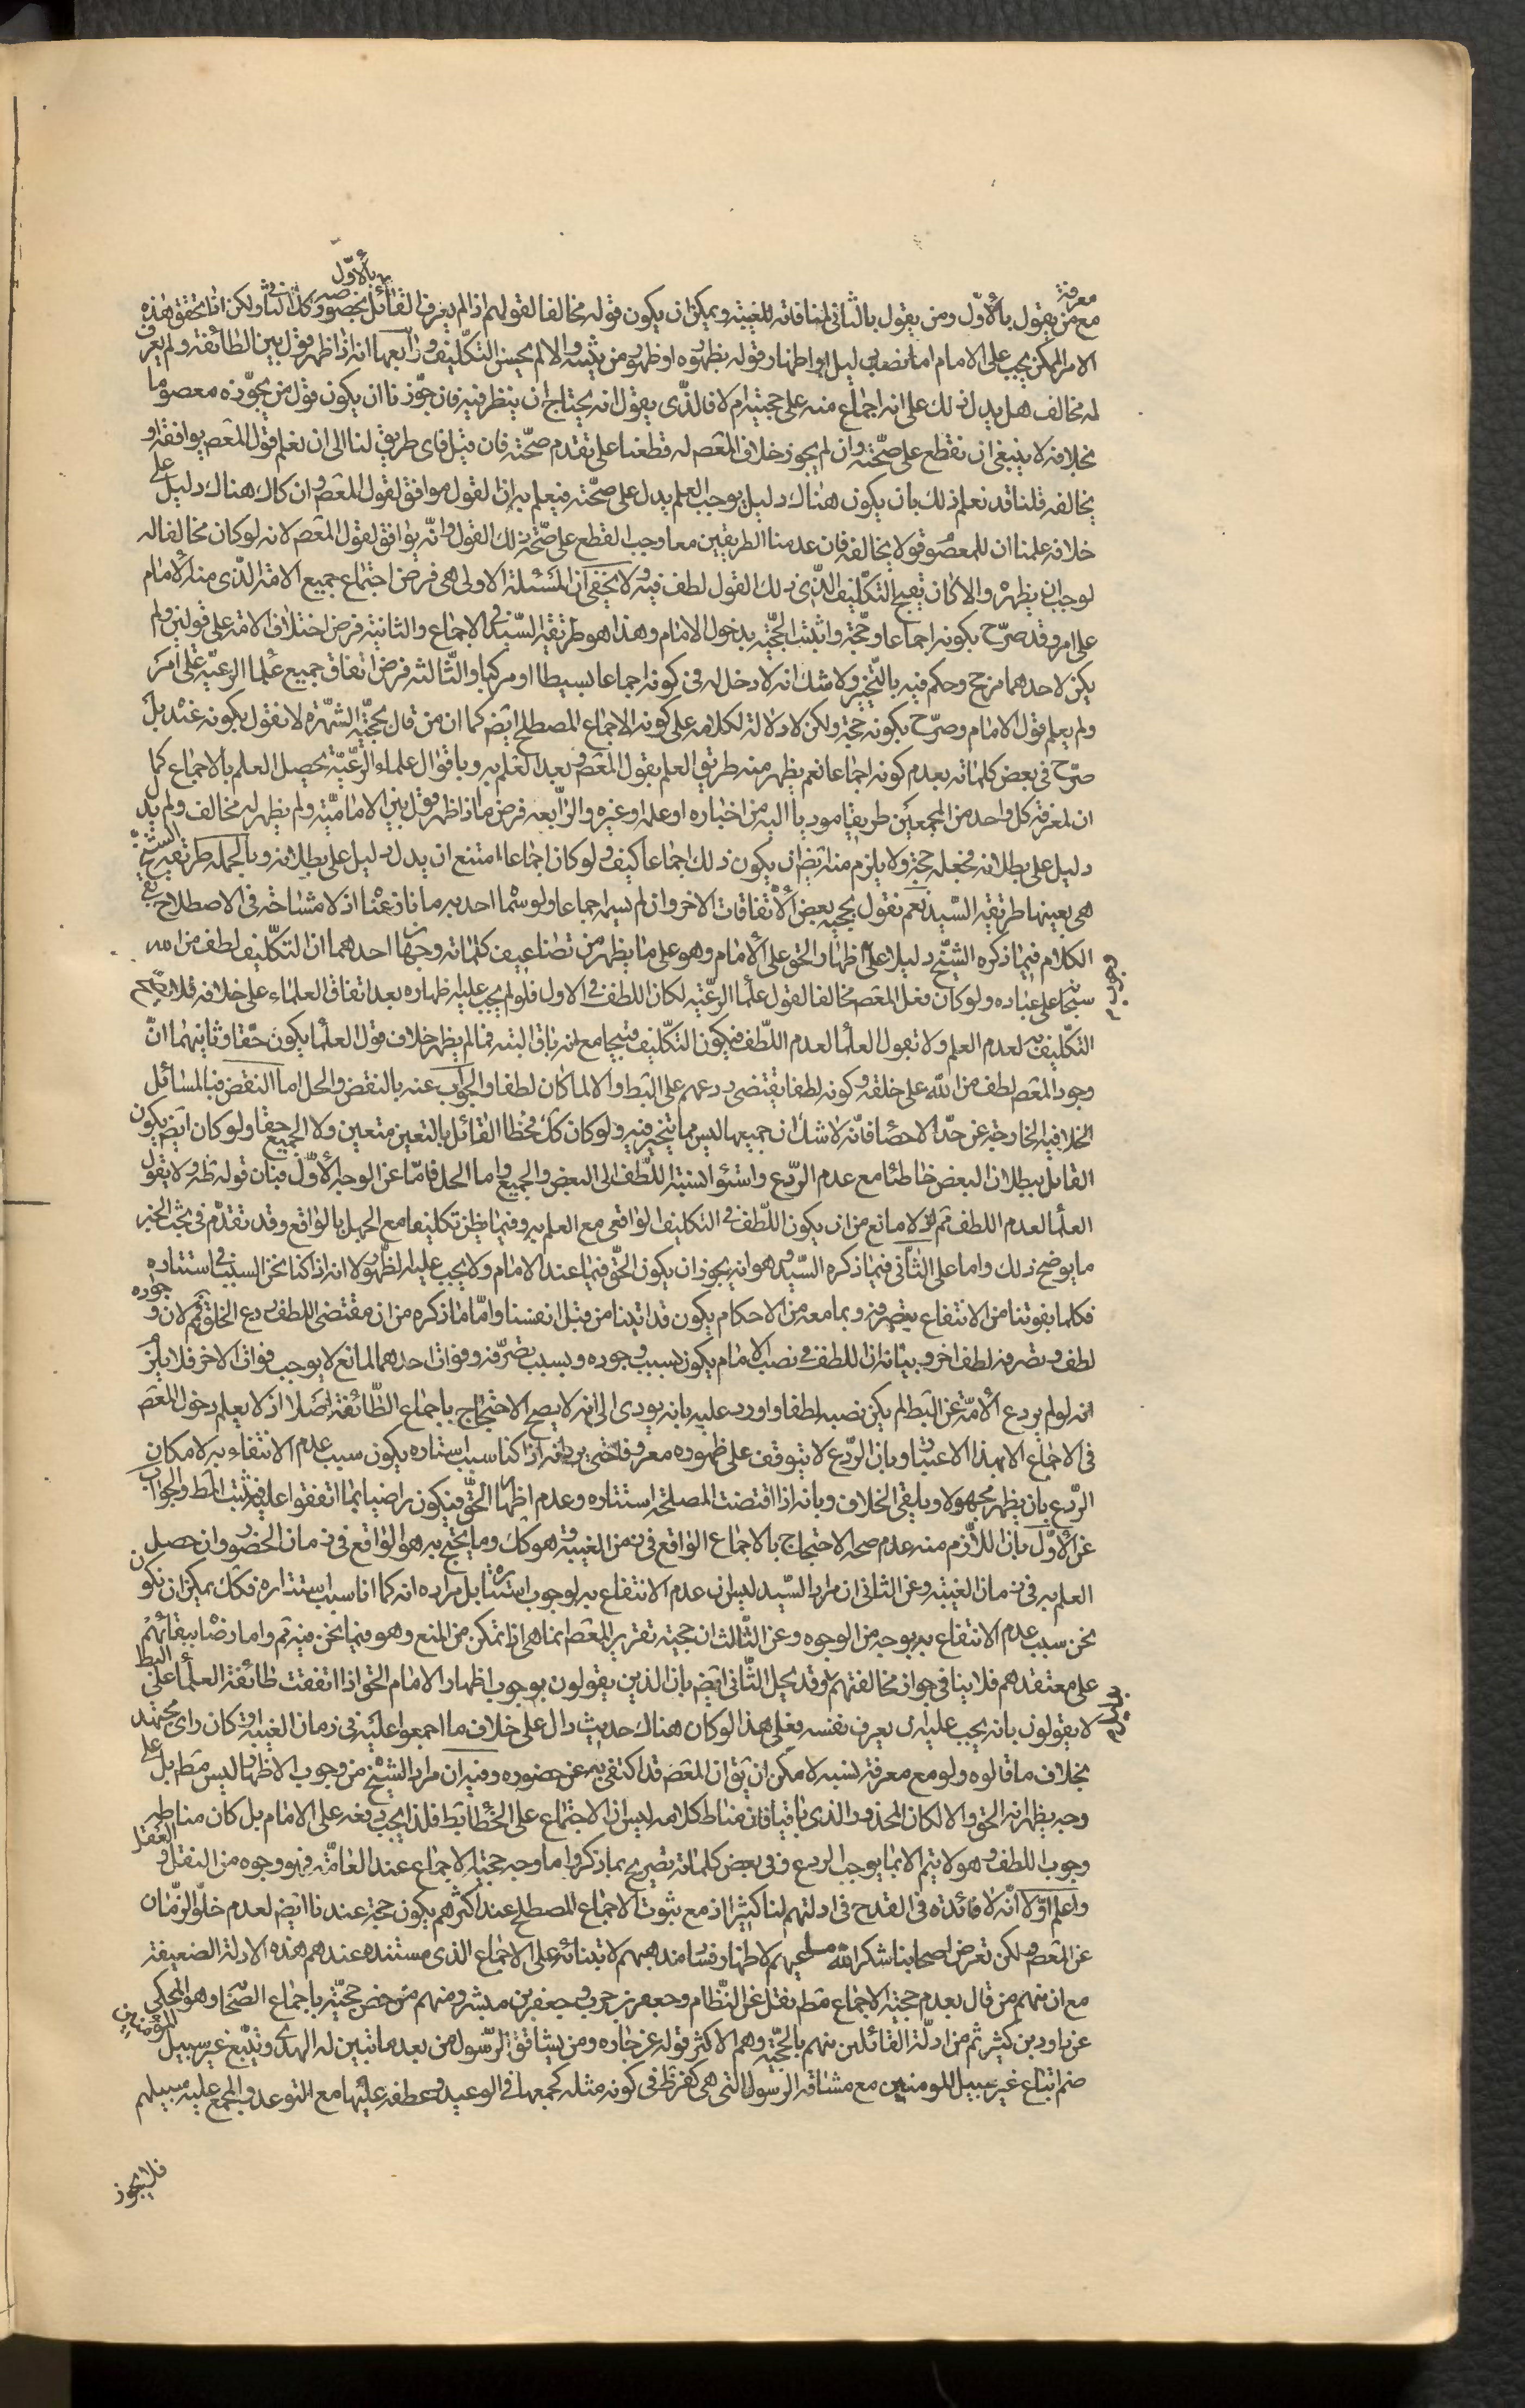 معرفة
مع من يقول بالأول ومن يقول بالثانى لمنافاته للغيبة ويمكن ان يكون قوله مخالفا لقولهم اذا لم يعرف القائل بالأول بخصوصه وكذا فى الثا ولكن اذا تحقق هذه
الامر الممكن يجب على الامام اما نصب دليل او اظهار قوله بظهوره او ظهور من يثبته والا لم يحسن التكليف ورابعها انه اذا ظهر قول بين الطائفة ولم يعرف
له مخالف هل يدل ذلك على انه اجماع منه على حجيته ام لا فالذى يقول انه يحتاج ان ينظر فيه فان جوّزنا ان يكون قول من يجوّزه معصوما
بخلافه لا ينبغى ان نقطع على صحّته وان لم يجوز خلاف المعصم له قطعنا على تقدم صحّته فان قيل فاى طريق لنا الى ان نعلم قول المعصم يوافقه او
يخالفه قلنا قد نعلم ذلك بان يكون هناك دليل يوجب العلم يدل على صحّته فيعلم به ان القول موافق لقول المعصم وان كان هناك دليل على
خلافه علمنا ان للمعصوم قولا يخالفه فان عدمنا الطريقين معا وجب القطع على صحّة ذلك القول وانّه يوافق لقول المعصم لانه لو كان مخالفا له
لوجب ان يظهره والا كان يقبح التكليف الذى ذلك القول لطف فيه ولا يخفى ان المسئلة الاولى هى فرض اجتماع جميع الامة الذى منه الامام
على امر وقد صرّح بكونه اجماعا وحجّة واثبت الحجّية بدخول الامام وهذا هو طريقة السيّد فى الاجماع والثانية فرض اختلاف الامة على قولين ولم
يكن لاحدهما مرجح وحكم فيه بالتخيير ولا شك انه لا دخل له فى كونه اجماعا بسيطا او مركبا والثّالثه فرض اتفاق جميع علما الرعيّة على امر
ولم يعلم قول الامام وصرّح بكونه حجة ولكن لا دلالة لكلامه على كونه الاجماع المصطلح ايضم كما ان من قال بحجّية الشهرة لا نقول بكونه عنده بل
صرّح فى بعض كلماته بعدم كونه اجماعا نعم يظهر منه طريق العلم بقول المعصم وبعد العلم به وباقوال علماء الرّعيّة يحصل العلم بالاجماع كما
ان لمعرفة كل واحد من المجمعين طريقا موديا اليه من اخباره او علمه او غيره والرّابعه فرض ما اذا ظهر قول بين الاماميّة ولم يظهر له مخالف ولم يدل
دليل على بطلانه فجعله حجة ولا يلزم منه ايضم ان يكون ذلك اجماعا كيف ولو كان اجماعا امتنع ان يدل دليل على بطلانه وبالجمله طريقة الشيخ
هى بعينها طريقة السّيد نعم نقول بحجية بعض الأتفاقات الاخر وان لم يسم اجماعا ولو سمّا احد به ما نازعنا اذ لا مشاحّة فى الاصطلاح بقى
الكلام فيما ذكره الشيّخ دليلا على اظهار الحق على الأمام وهو على ما يظهر من تضاعيف كلماته وجها احدهما ان التكليف لطف من الله
سبحا على عباده ولو كان فعل المعصم مخالفا لقول علما الرعيّة لكان اللطف فى الاول فلو لم يجب عليه اظهاره بعد اتفاق العلماء على خلافه فلا يصحّ
التكليف به لعدم العلم ولا بقول العلما لعدم اللّطف فيكون التكليف قبيحا مع انه باق البته فما لم يظهر خلاف قول العلما يكون حقّا وثانيهما انّ
وجود المعصم لطف من الله على خلقه وكونه لطفا يقتضى ردعهم على البط والا لما كان لطفا والجواب عنه بالنقض والحل اما النقض فبالمسائل
الخلافية الخارجة عن حدّ الاحصا فانّه لا شك ان جميعها ليس مما يتخير فيه ولو كان كك مخطا القائل بالتعيين متعين ولا الجميع حقا ولو كان ايضم يكون
القائل ببطلان البعض خاطئا مع عدم الرّدع واستوا نسبة اللّطف الى البعض والجميع واما الحل فامّا عن الوجه الأوّل فبان قوله ظه ولا بقول
العلما لعدم اللطف فيه لانه لا مانع من ان يكون اللّطف فى التكليف الواقعى مع العلم به وفيما يظن تكليفا مع الجهل بالواقع وقد تقدّم فى بحث الخبر
ما يوضح ذلك واما على الثّانى فيما ذكره السّيد وهو انه يجوز ان يكون الحقّ فيما عند الامام ولا يجب عليه الظهور لانه اذا كنا نحن السبب فى استتاره
فكلما يفوتنا من الانتفاع بتصرفه وبما معه من الاحكام يكون قد اتينا من قبل انفسنا وامّا ما ذكره من ان مقتضى اللطف ردع الخلق فهم لان وجوده
لطف وتصرفه لطف اخر وبيانه ان اللطف فى نصب الامام يكون بسبب وجوده وبسبب تصرّفه وفوات احدهما لمانع لا يوجب فوات الاخر فلا يلزم
انه لو لم يردع الأمّة عن البط لم يكن نصبه لطفا واورد عليه بانه يودى الى انه لا يصح الاحتجاج باجماع الطّائفة اصلا اذ لا يعلم دخول المعصم
فى الاجماع الا بهذا الاعتبار وبان الرّدع لا يتوقف على ظهوره معروفا حتى يردانه اذا كنا سبب استتاره يكون سبب عدم الانتفاء به لامكان
الرّدع بان يظهر مجهولا ويلقى الخلاف وبانه اذا اقتضت المصلحة استتاره وعدم اظهار الحقّ فيكون راضيا بما اتفقوا عليه فيثبت المط والجواب
عن الأوّل بان اللاّزم منه عدم صحة الاحتجاج بالاجماع الواقع فى زمن الغيبة وهو كك وما يحتج به هو الواقع فى زمان الحضور وان حصل
العلم به فى زمان الغيبة وعن الثانى ان مراد السّيد ليس ان عدم الانتفاع به لوجوب استتاره بل مراده انه كما انا سبب استتاره فكك يمكن ان نكون
نحن سبب عدم الانتفاع به بوجه من الوجوه وعن الثّالث ان حجية تقرير المعصم انما هى اذا تمكن من المنع وهو فيما نحن فيه ثم واما رضا ببقائهم
على معتقدهم فلا ينافى جواز مخالفتهم له وقد يحل الثّانى ايضم بان الذين يقولون بوجوب اظهار الامام الحق اذا اتفقت طائفة العلما على البط
لا يقولون بانه يجب عليه ان يعرف نفسه فعلى هذا لو كان هناك حديث دال على خلاف ما اجمعوا عليه فى زمان الغيبة او كان راى مجتهد
بخلاف ما قالوه ولو مع معرفة نسبه لامكن ان يق ان المعصم قد اكتفى به عن حضوره وفيه ان مراد الشيخ من وجوب الاظهار ليس مطم بل على
وجه يظهر انه الحق والا لكان المحذور الذى باقيا فان مناط كلامه ليس ان الاجتماع على الخطا بط فلذا يجب دفعه على الامام بل كان مناطه
وجوب اللطف وهو لا يتم الا بما يوجب الردع وفى بعض كلماته تصريح بما ذكر واما وجه حجية الاجماع عند العامّة فهو وجوه من النقل والعقل
واعلم اوّلا انّه لا فائدة فى القدح فى ادلتهم لنا كثيرا اذ مع ثبوت الاجماع المصطلح عند اكثرهم يكون حجة عندنا ايضم لعدم خلوّ الزّمان
عن المعصم ولكن تعرض اصحابنا شكر الله مساعيهم لاظهار فساد مذهبهم لابتنائه على الاجماع الذى مستنده عندهم هذه الادلة الضعيفة
مع ان منهم من قال بعدم حجية الاجماع مطم نقل عن النّظام وجعفر بن حرب وجعفر بن مبشر ومنهم من خص حجيّته باجماع الصّحا وهو المحكى
عن داود بن كثير ثم من ادلّة القائلين منهم بالحجّية وهم الاكثر قوله عز جاره ومن يشاقق الرّسول من بعد ما تبين له الهدى ويتبع غير سبيل المؤمنين
ضم اتباع غير سبيل المومنين مع مشاقه الرسول التى هى كفر ظ فى كونه مثله كجمعها فى الوعيد وعطفه عليها مع التوعد والجمع عليه سبيلهم
فلا يجوز